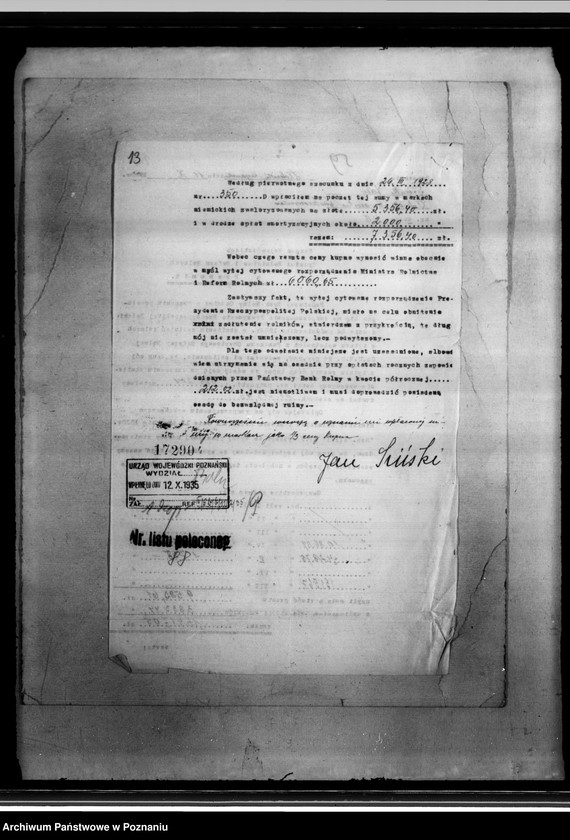 13
59
Według pierwotnego szacunku z dnia 26 III 1920
nr. 350. O wpłaciłem na poczet tej sumy w markach
niemieckich zwaloryzowanych na złote.....5.356,40...zł.
i w drodze spłat amortyzacyjnych około...2.000
razem: ......7.356,40...zł.
Wobec czego reszta ceny kupna wynosić winna obecnie
w myśl wyżej cytowanego rozporządzenia Ministra Rolnictwa
i Reform Rolnych zł...6.060.65
Zważywszy fakt, że wyżej cytowane rozporządzenie Pre-
zydenta Rzeczypospolitej Polskiej, miało na celu obniżenie
zadłużenia rolników, stwierdzam z przykrością, że dług
mój nie został umniejszony, lecz podwyższony.-
Dla tego odwołanie niniejsze jest uzasadnione, albo-
wiem utrzymanie się na osadzie przy spłatach rocznych zapowie-
dzianych przez Państwowy Bank Rolny w kwocie półrocznej.....
212.22 zł. jest niemożliwem i musi doprowadzić powierzoną
osadę do bezwzględnej ruiny.-
Równocześnie wnoszę o uznanie wpłaconej
w markach jako 1/3 ceny kupna
17290
Jan Siiski
URZĄD WOJEWÓDZKI POZNAŃSKI
WYDZIAŁ
WPŁYNĘŁO DNIA 12.X.1935
No
ZAŁ. REF
Nr. listu poleconego
88
Archiwum Państwowe w Poznaniu